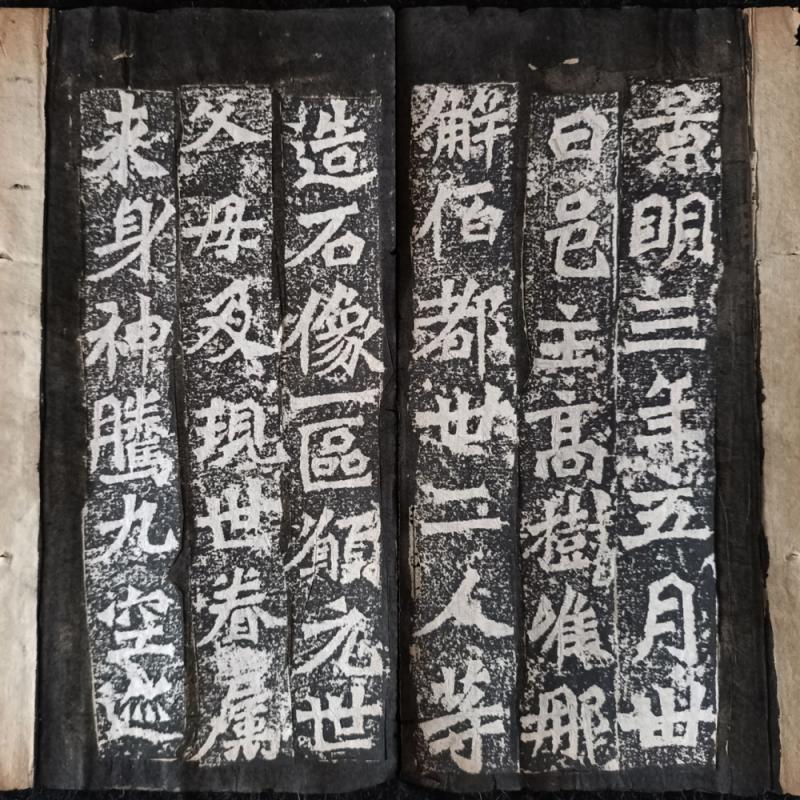 景明三年五月卅
日邑主髙樹唯那
解佰都卅二人等
造石像一區願元世
父母及現世眷属
来身神騰九空迹